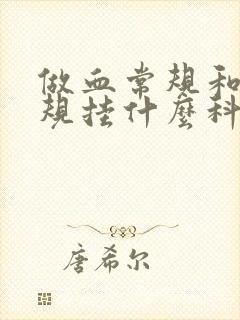 做血常规和
规挂什麼科
唐希尔